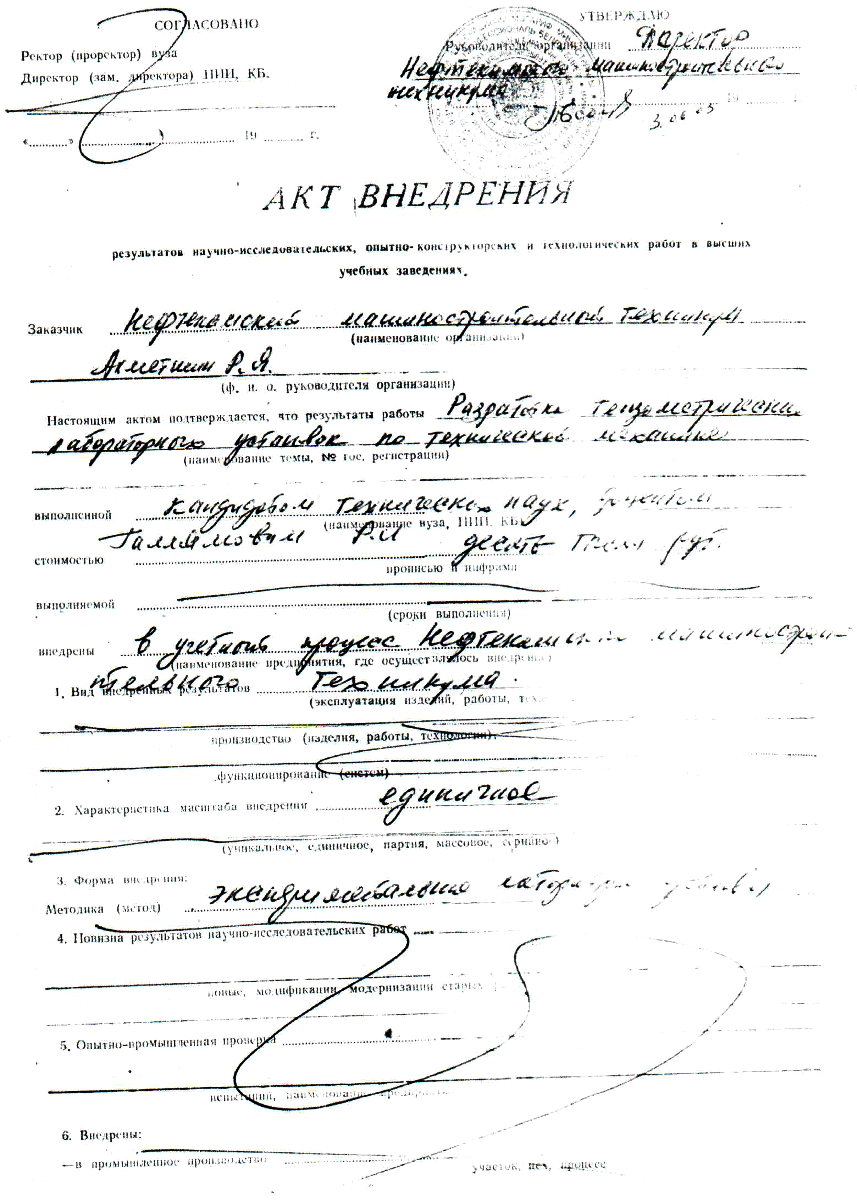 СОГЛАСОВАНО
УТВЕРЖДАЮ
Ректор (проректор) вуза
Руководитель организации Директор
Директор (зам. директора) НИИ, КБ.
Нефтекамского машиностроительного
техникума
19
3.06.05
«..........» 19 г.
АКТ ВНЕДРЕНИЯ
результатов научно-исследовательских, опытно-конструкторских и технологических работ в высших
учебных заведениях.
Заказчик Нефтекамский машиностроительный техникум
(наименование организации)
Ахметшин Р.Я.
(ф. и. о. руководителя организации)
Настоящим актом подтверждается, что результаты работы Разработка тензометрических
лабораторных установок по технической механике
(наименование темы, № гос. регистрации)
выполненной кандидатом технических наук, доцентом
(наименование вуза, НИИ, КБ)
Галлямовым Р.И
стоимостью десять тысяч руб.
прописью и цифрами
выполняемой
(сроки выполнения)
внедрены в учебный процесс Нефтекамского машинострои-
(наименование предприятия, где осуществлялось внедрение)
тельного техникума.
1. Вид внедренных результатов
(эксплуатация изделий, работы, тех
производство (изделия, работы, технологии).
функционирование (систем)
2. Характеристика масштаба внедрения единичное
(уникальное, единичное, партия, массовое, серийное)
3. Форма внедрения:
Методика (метод) экспериментальные лабораторн
4. Новизна результатов научно-исследовательских работ
новые, модификации, модернизации старых
5. Опытно-промышленная проверка
испытаний, наименование предприятия
6. Внедрены:
—в промышленное производство
участок, цех, процесс